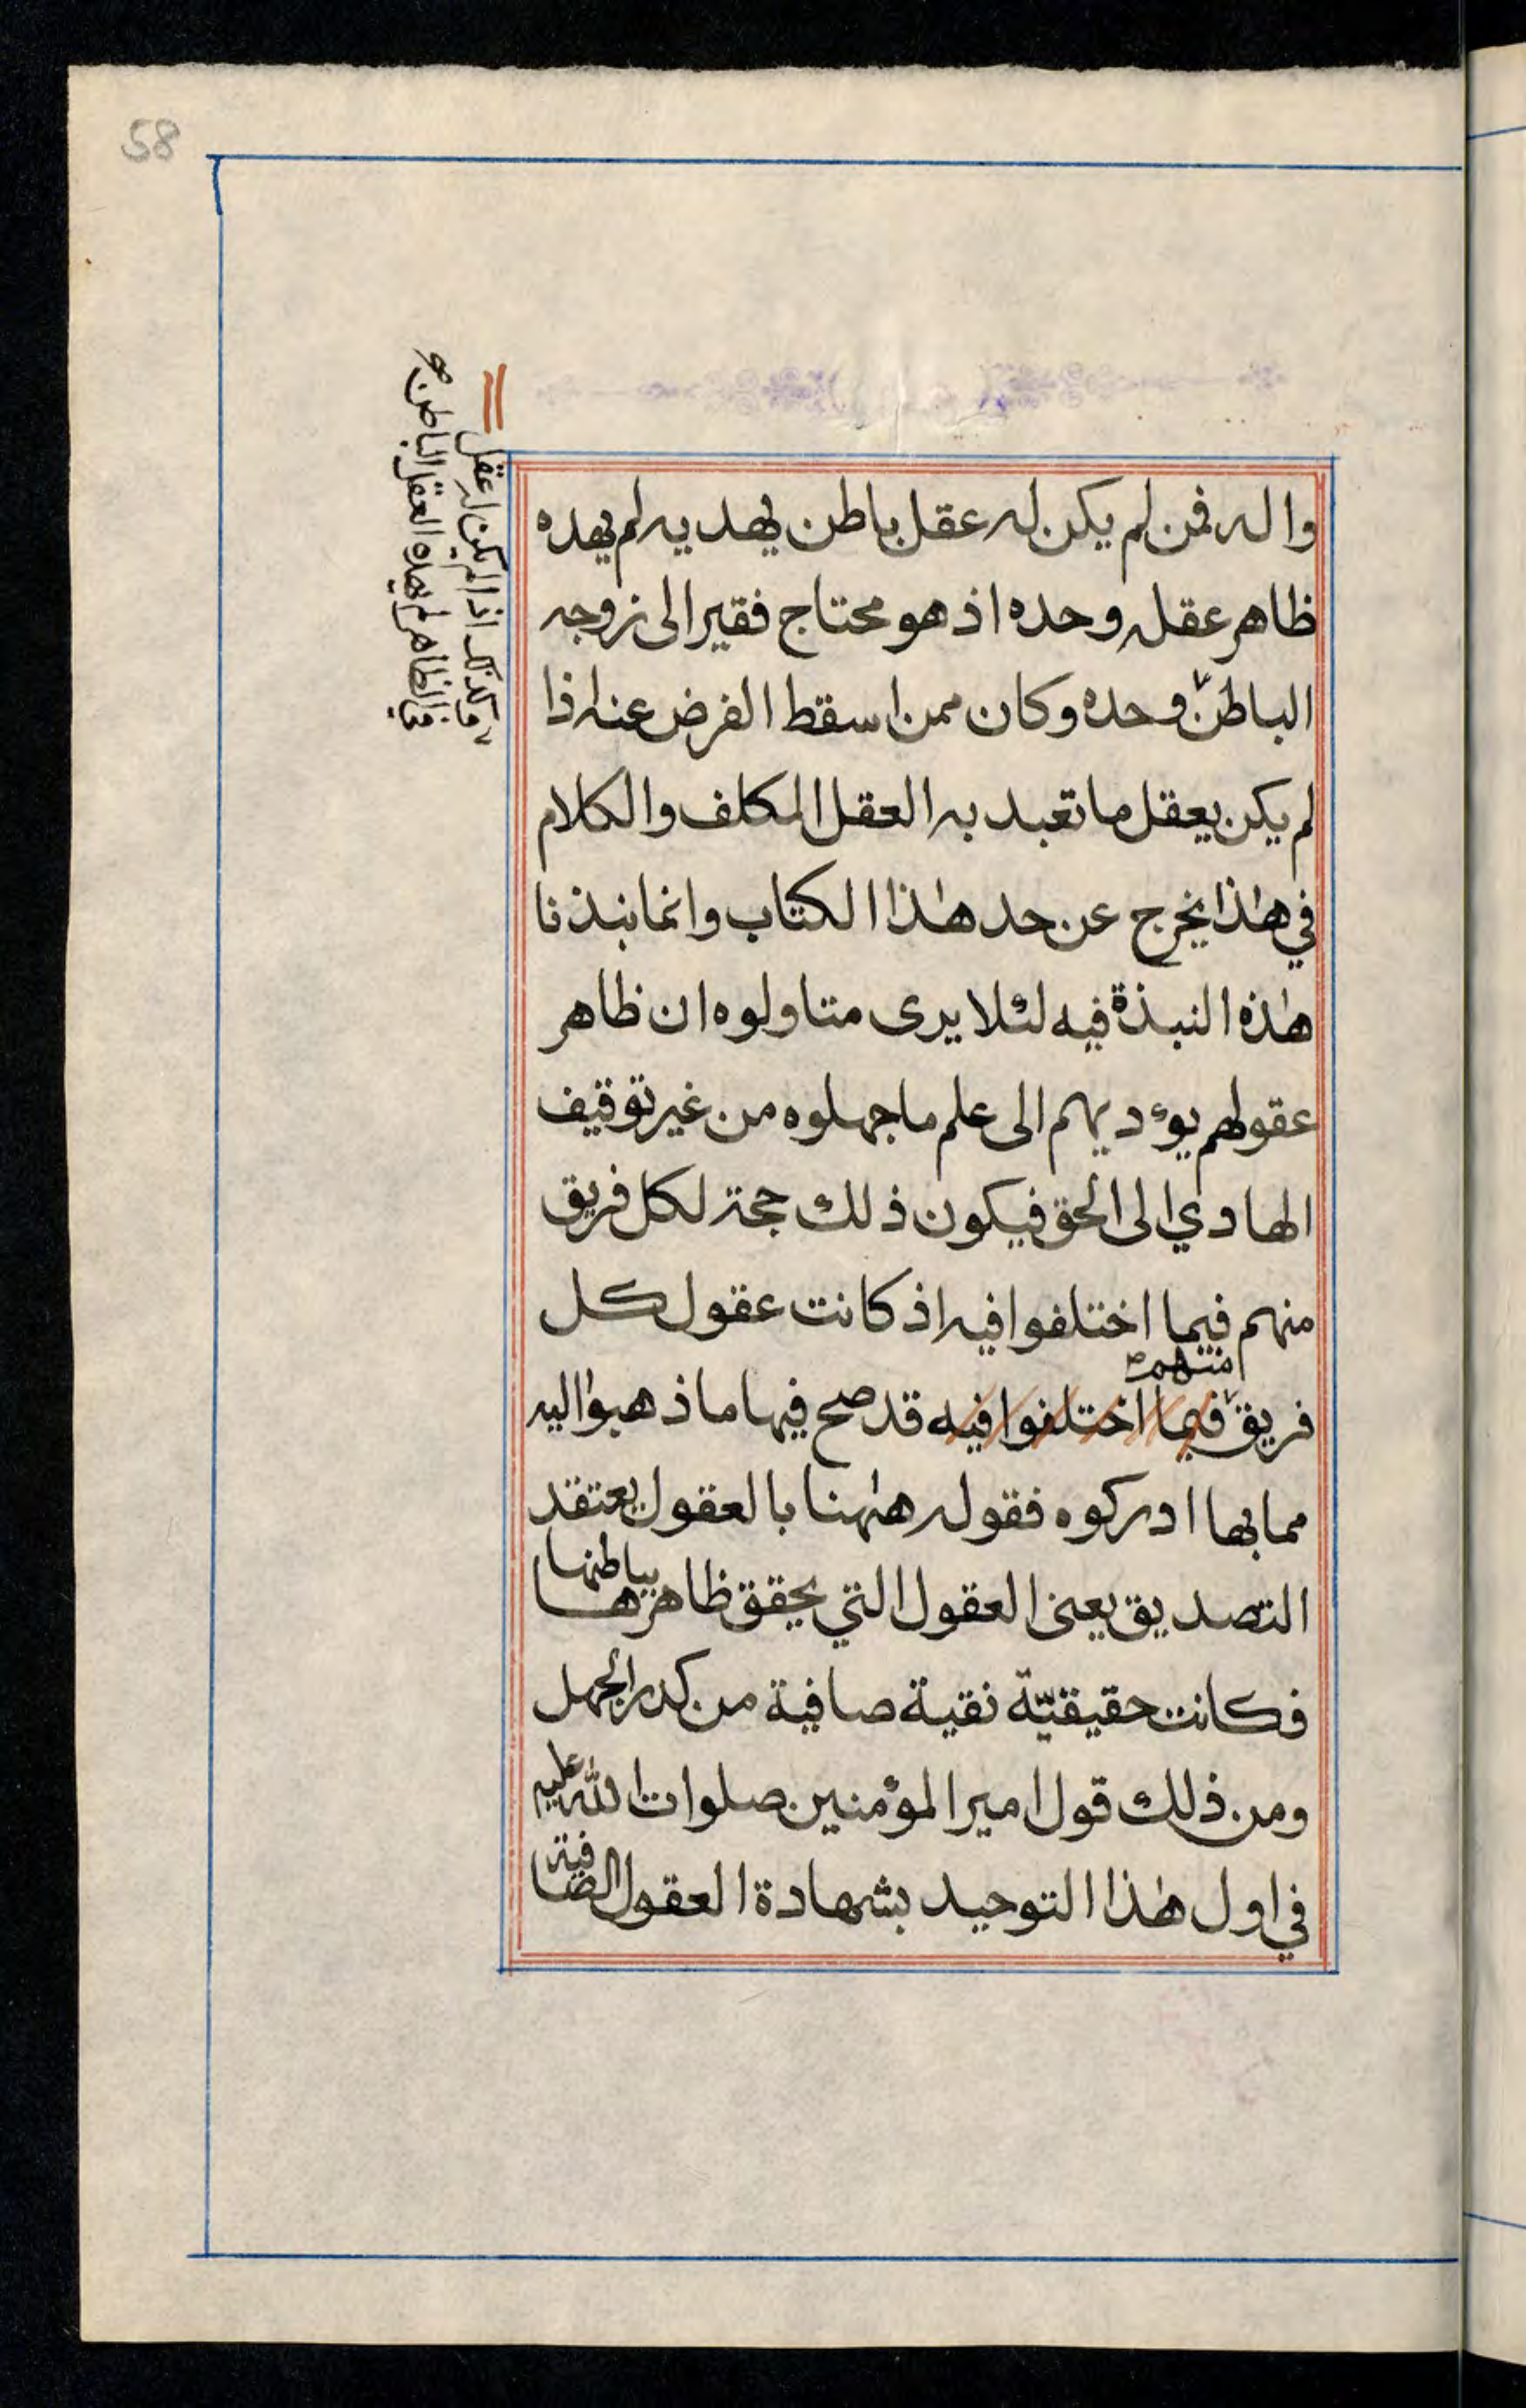 58
واله فمن لم يكن له عقل باطن يهديه لم يهده
ظاهر عقله وحده اذ هو محتاج فقير الى زوجه
الباطن وحده وكان ممن اسقط الفرض عنه اذا
لم يكن يعقل ما تعبد به العقل المكلف والكلام
في هٰذا يخرج عن حد هٰذا الكتاب وانما نبذنا
هٰذه النبذة فيه لئلا يرى متاولوه ان ظاهر
عقولهم يوٴديهم الى علم ما جهلوه من غير توقيف
الهادي الى الحق فيكون ذلك حجة لكل فريق
منهم فيما اختلفوا فيه اذ كانت عقول كل
منهم صح
فريق فيما اختلفوا فيه قد صح فيها ما ذهبوا اليه
مما بها ادركوه فقوله هٰهنا بالعقول يعتقد
التصديق يعني العقول التي يحقق ظاهرها بباطنها
فكانت حقيقيّة نقية صافية من كدر الجهل
ومن ذلك قول امير المؤمنين صلوات الله عليه
في اول هٰذا التوحيد بشهادة العقول الصافية
وكذلك اذا لم يكن له عقل
في الظاهر لم يهده العقل الباطن صح